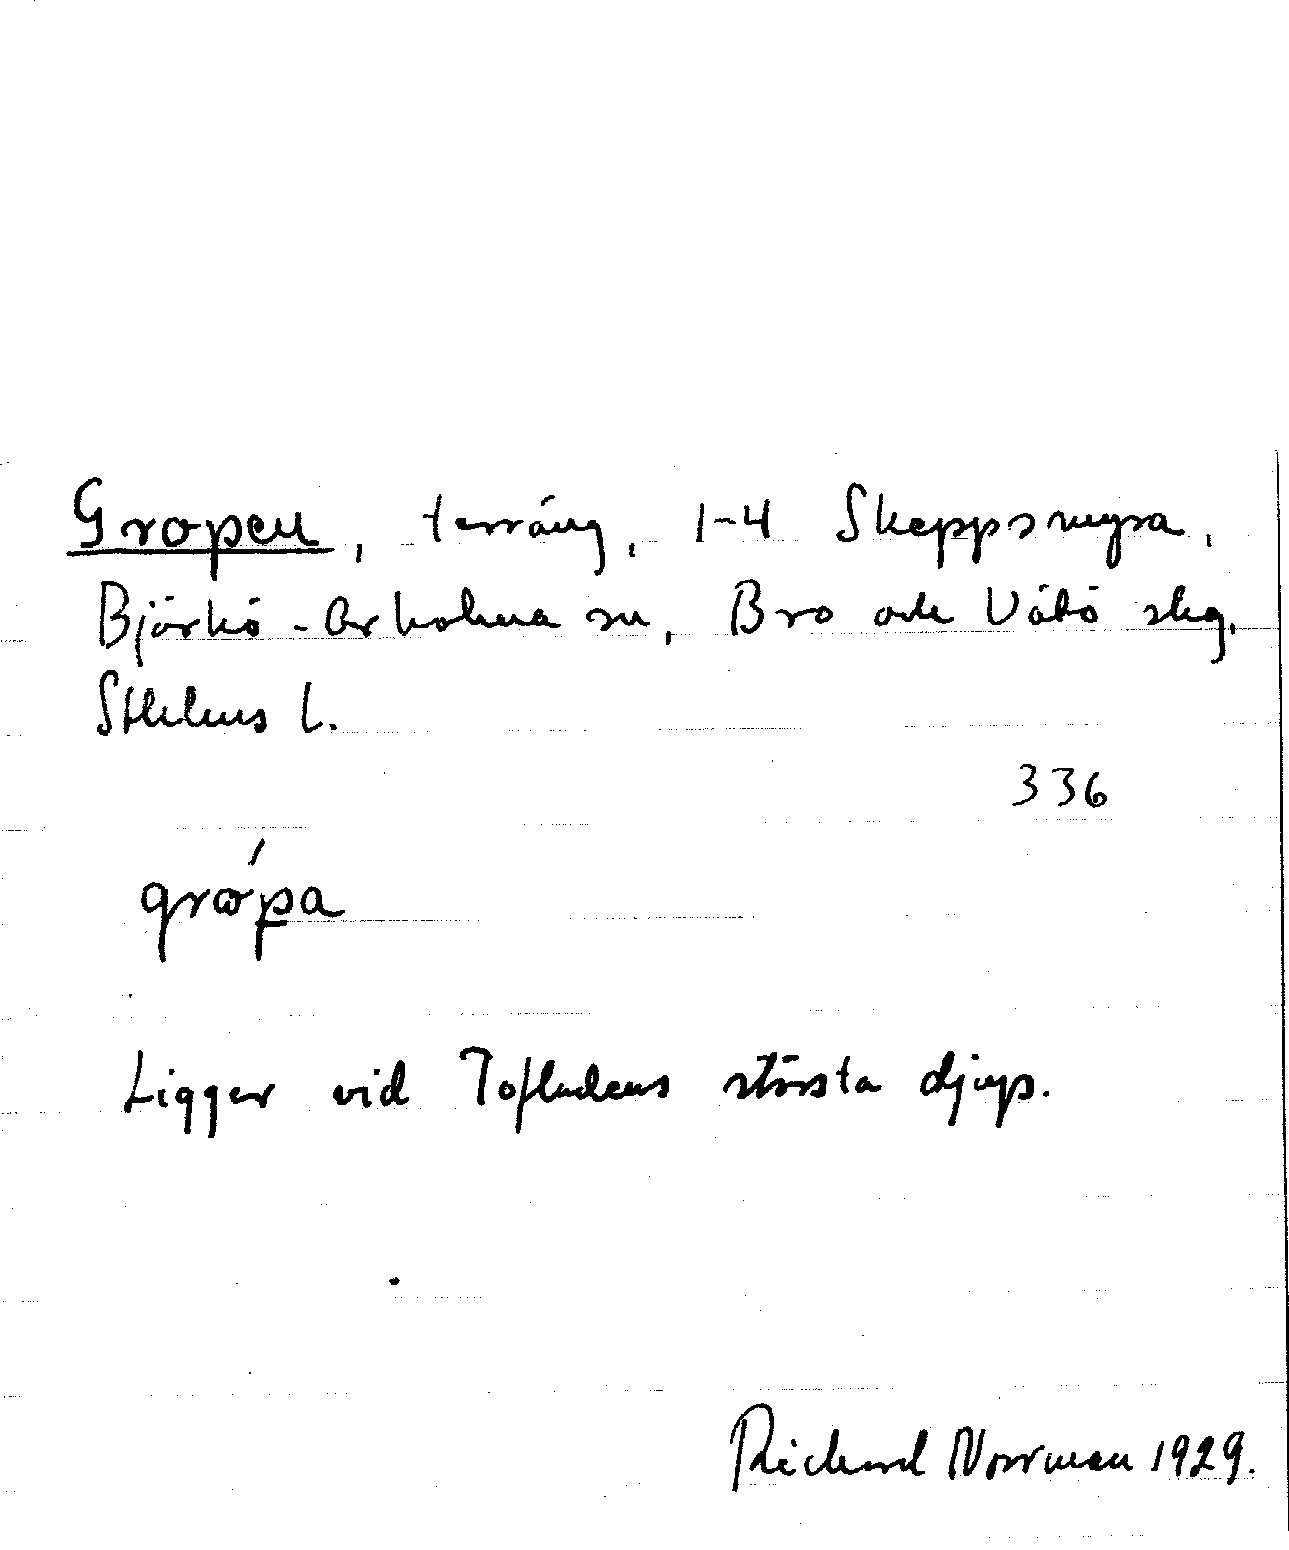 Gropen, terräng, 1-4 Skeppsmyra,
Björkö-Arholma sn, Bro och Vätö skg,
Sthlms l.
336
Ligger vid Tofladens största djup.
Richard Norrman 1929.